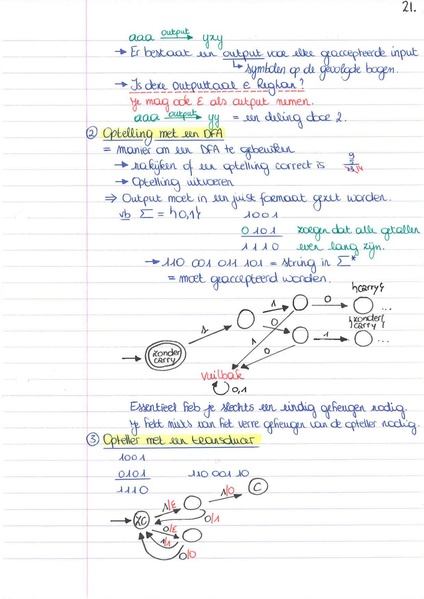 21.
aaa output→ yxy
→ Er bestaat een output voor elke geaccepteerde input
↳ symbolen op de gevolgde bogen.
→ Is deze outputtaal ∈ RegLan?
Je mag ook ε als output nemen.
aaa output→ yy = een deling door 2.
② Optelling met een DFA
= manier om een DFA te gebruiken
→ nakijken of een optelling correct is
→ Optelling uitvoeren
⇒ Output moet in een juist formaat gezet worden.
vb Σ = {0,1} 1001
0101 zorgen dat alle getallen
1110 even lang zijn.
→ 110 001 011 101 = string in Σ*
= moet geaccepteerd worden.
{carry}
1 0 ...
1 0 {zonder carry}
zonder carry
0 1 ...
vuilbak
0,1
Essentieel heb je slechts een eindig geheugen nodig.
Je hebt niets van het verre geheugen van de opteller nodig.
③ Opteller met een transducer
1001
0101 110 001 10
1110
1/ε 1/0 C
ZC 0/1
0/ε
1/1
0/0